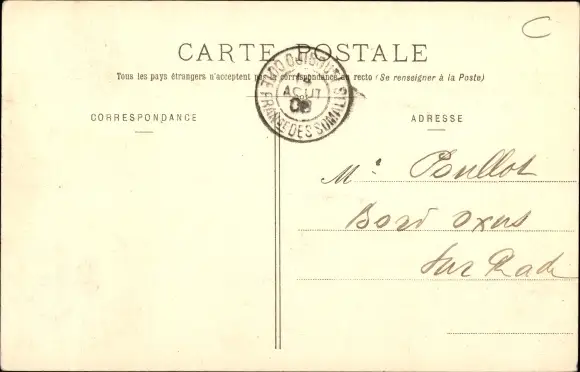 C
CARTE POSTALE
Tous les pays étrangers n'acceptent pas la correspondance au recto (Se renseigner à la Poste)
DJIBOUTI
AOUT
08
CÔTE FRANÇSE DES SOMALIS
CORRESPONDANCE
ADRESSE
Mr Poullot
Bord Oxus
Sur Rade